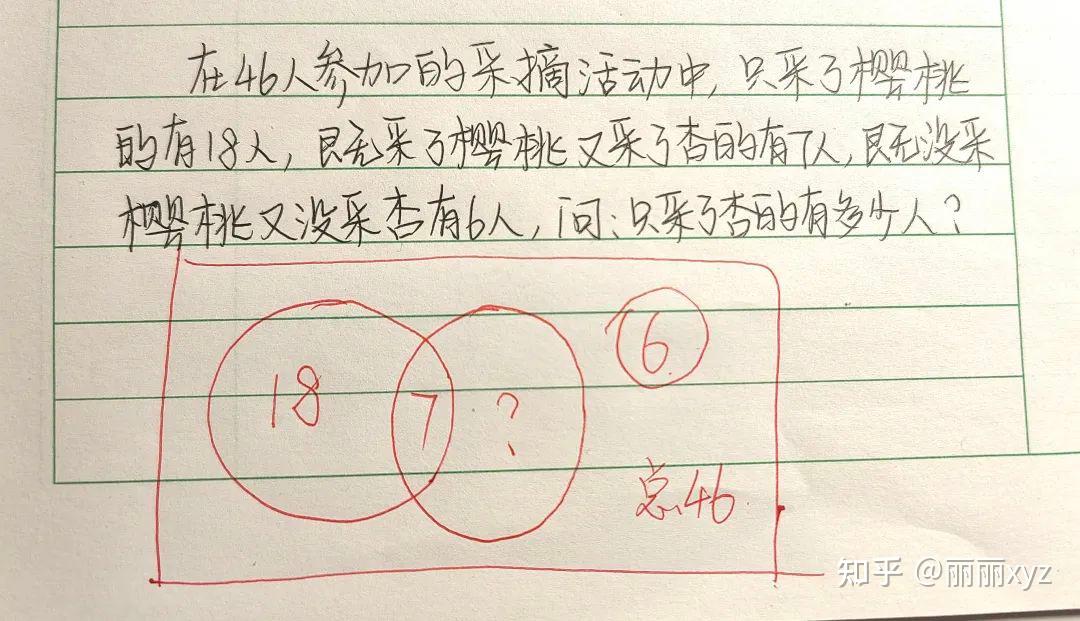 在46人参加的采摘活动中,只采了樱桃
的有18人,既采了樱桃又采了杏的有7人,既没采
樱桃又没采杏有6人,问:只采了杏的有多少人?
18
7
?
6
总46
知乎 @丽丽xyz